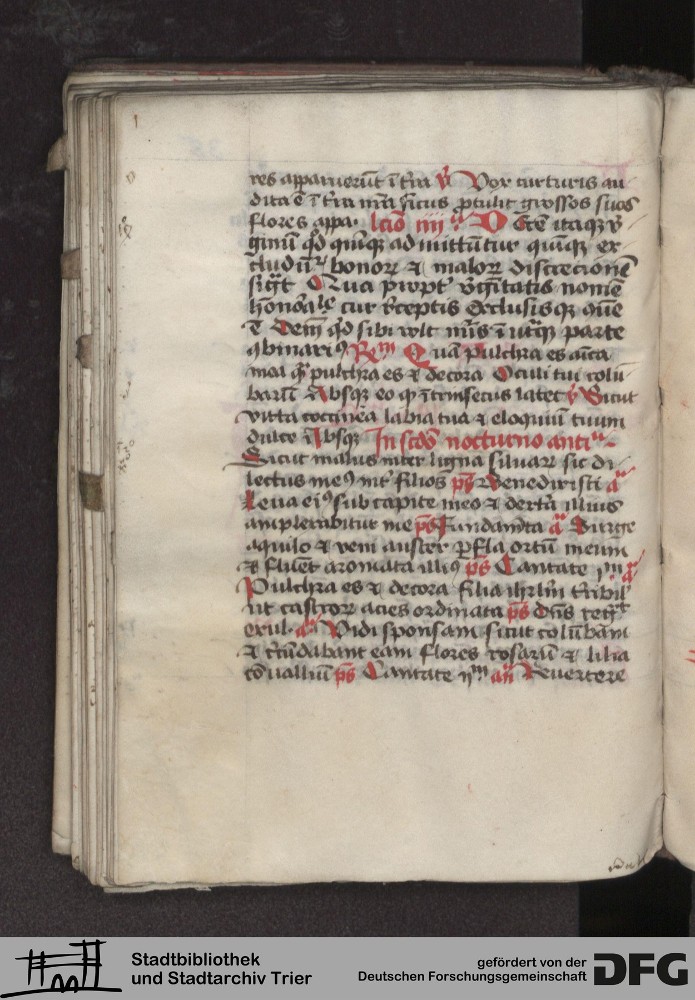 res apparuerūt ī t̄ra v̄ Vox turturis au
dita ē ī t̄ra nr̄a ficus protulit grossos suos
flores appa· lcīo iiii
ginū qd̄ quīqꝫ admittūtur quīqꝫ ex
cludūt honorꝫ discrecionē
nomē
cur receptis exclusisqꝫ
ē Dem̄ qd̄ sibi vult parte
Quā pulchra es aīca
mea pulchra es et decora Oculi tui colū
barū Absqꝫ eo qd̄ ītrīsecus latet v̄ Sicut
vitta coccinea labia tua et eloquiū tuum
dulce Absqꝫ In scdo nocturno anti
Sicut malus inter ligna siluarꝫ sic di
lectus meꝰ int̄ filios ps̄ Benedixisti a
Leua eiꝰ sub capite meo et dextra illius
amplexabitur me ps̄ Fundamēta a Surge
aquilo et veni auster perfla ortū meum
et fluēt aromata illiꝰ ps̄ Cantate a
Pulchra es et decora filia ihrlm̄ t̄ribil
ut castrorꝫ acies ordinata ps̄ Dn̄s reg
exul· a Vidi sponsam sicut colūbam
et circūdabant eam flores rosarū et lilia
cōualliū ps̄ Cantate an̄ Reuertere
Stadtbibliothek
und Stadtarchiv Trier
gefördert von der
Deutschen Forschungsgemeinschaft
DFG